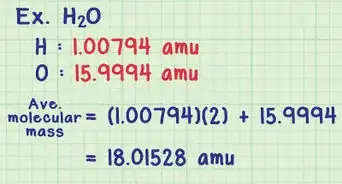 Ex. H₂O
H : 1.00794 amu
O : 15.9994 amu
Ave. molecular mass = (1.00794)(2) + 15.9994
= 18.01528 amu